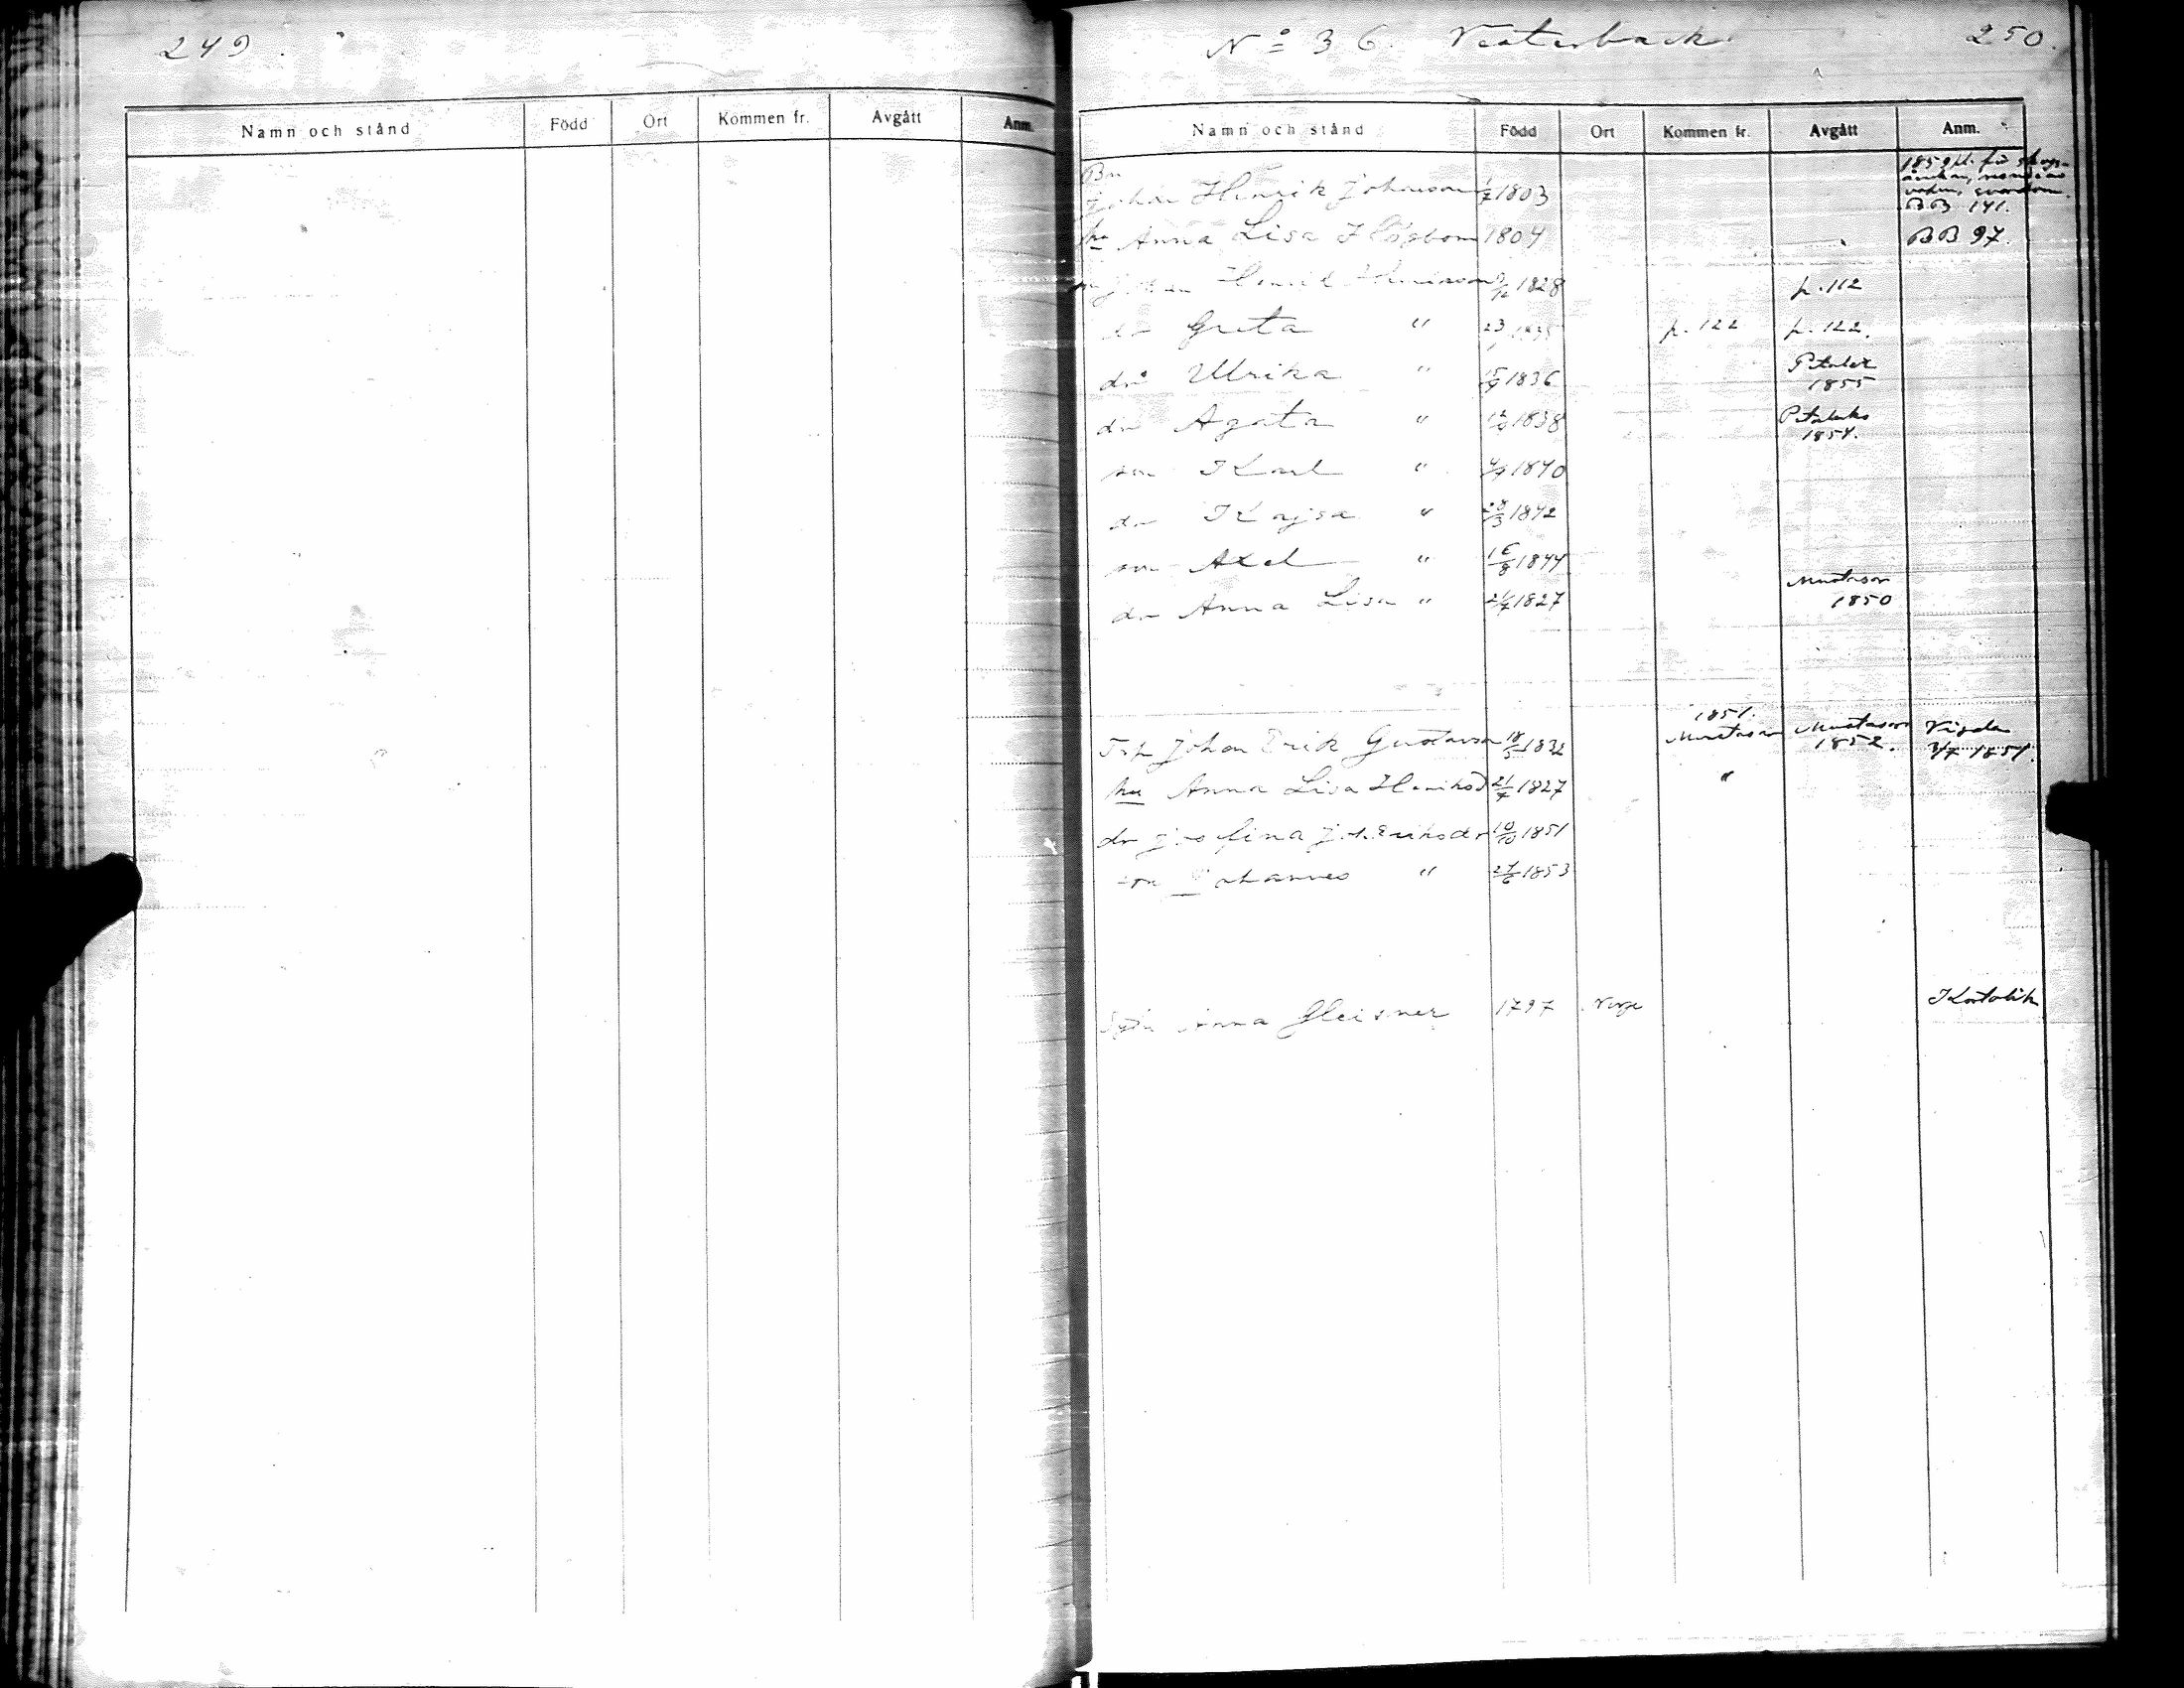 249
Namn och stånd Född Ort Kommen fr. Avgått Anm.
No 36. Vesterback 250.
Namn och stånd Född Ort Kommen fr. Avgått Anm.
Bn
Johan Henrik Johansson 1803
BB 141.
hu Anna Lisa Högbom 1804 BB 97.
Johan Henrik Henriksson 1828 p. 112
dr Greta " 23 1835 p. 122 p. 122.
dr Ulrika " 15/9 1836 1855
dr Agata " 1838 1854.
son Karl " 1840
dr Kajsa " 28/3 1842
son Axel " 16/8 1844
dr Anna Lisa " 21/7 1827 Mustasaari 1850
1851.
Johan Erik Gustavsson 18/5 1832 Mustasaari Mustasaari 1852. Vigda 3/7 1851.
hu Anna Lisa Henriksd 21/7 1827 "
dr Josefina Joh. Eriksdr 10/10 1851
son Johannes " 27/6 1853
Anna Gleisner 1797 Norge Katolik